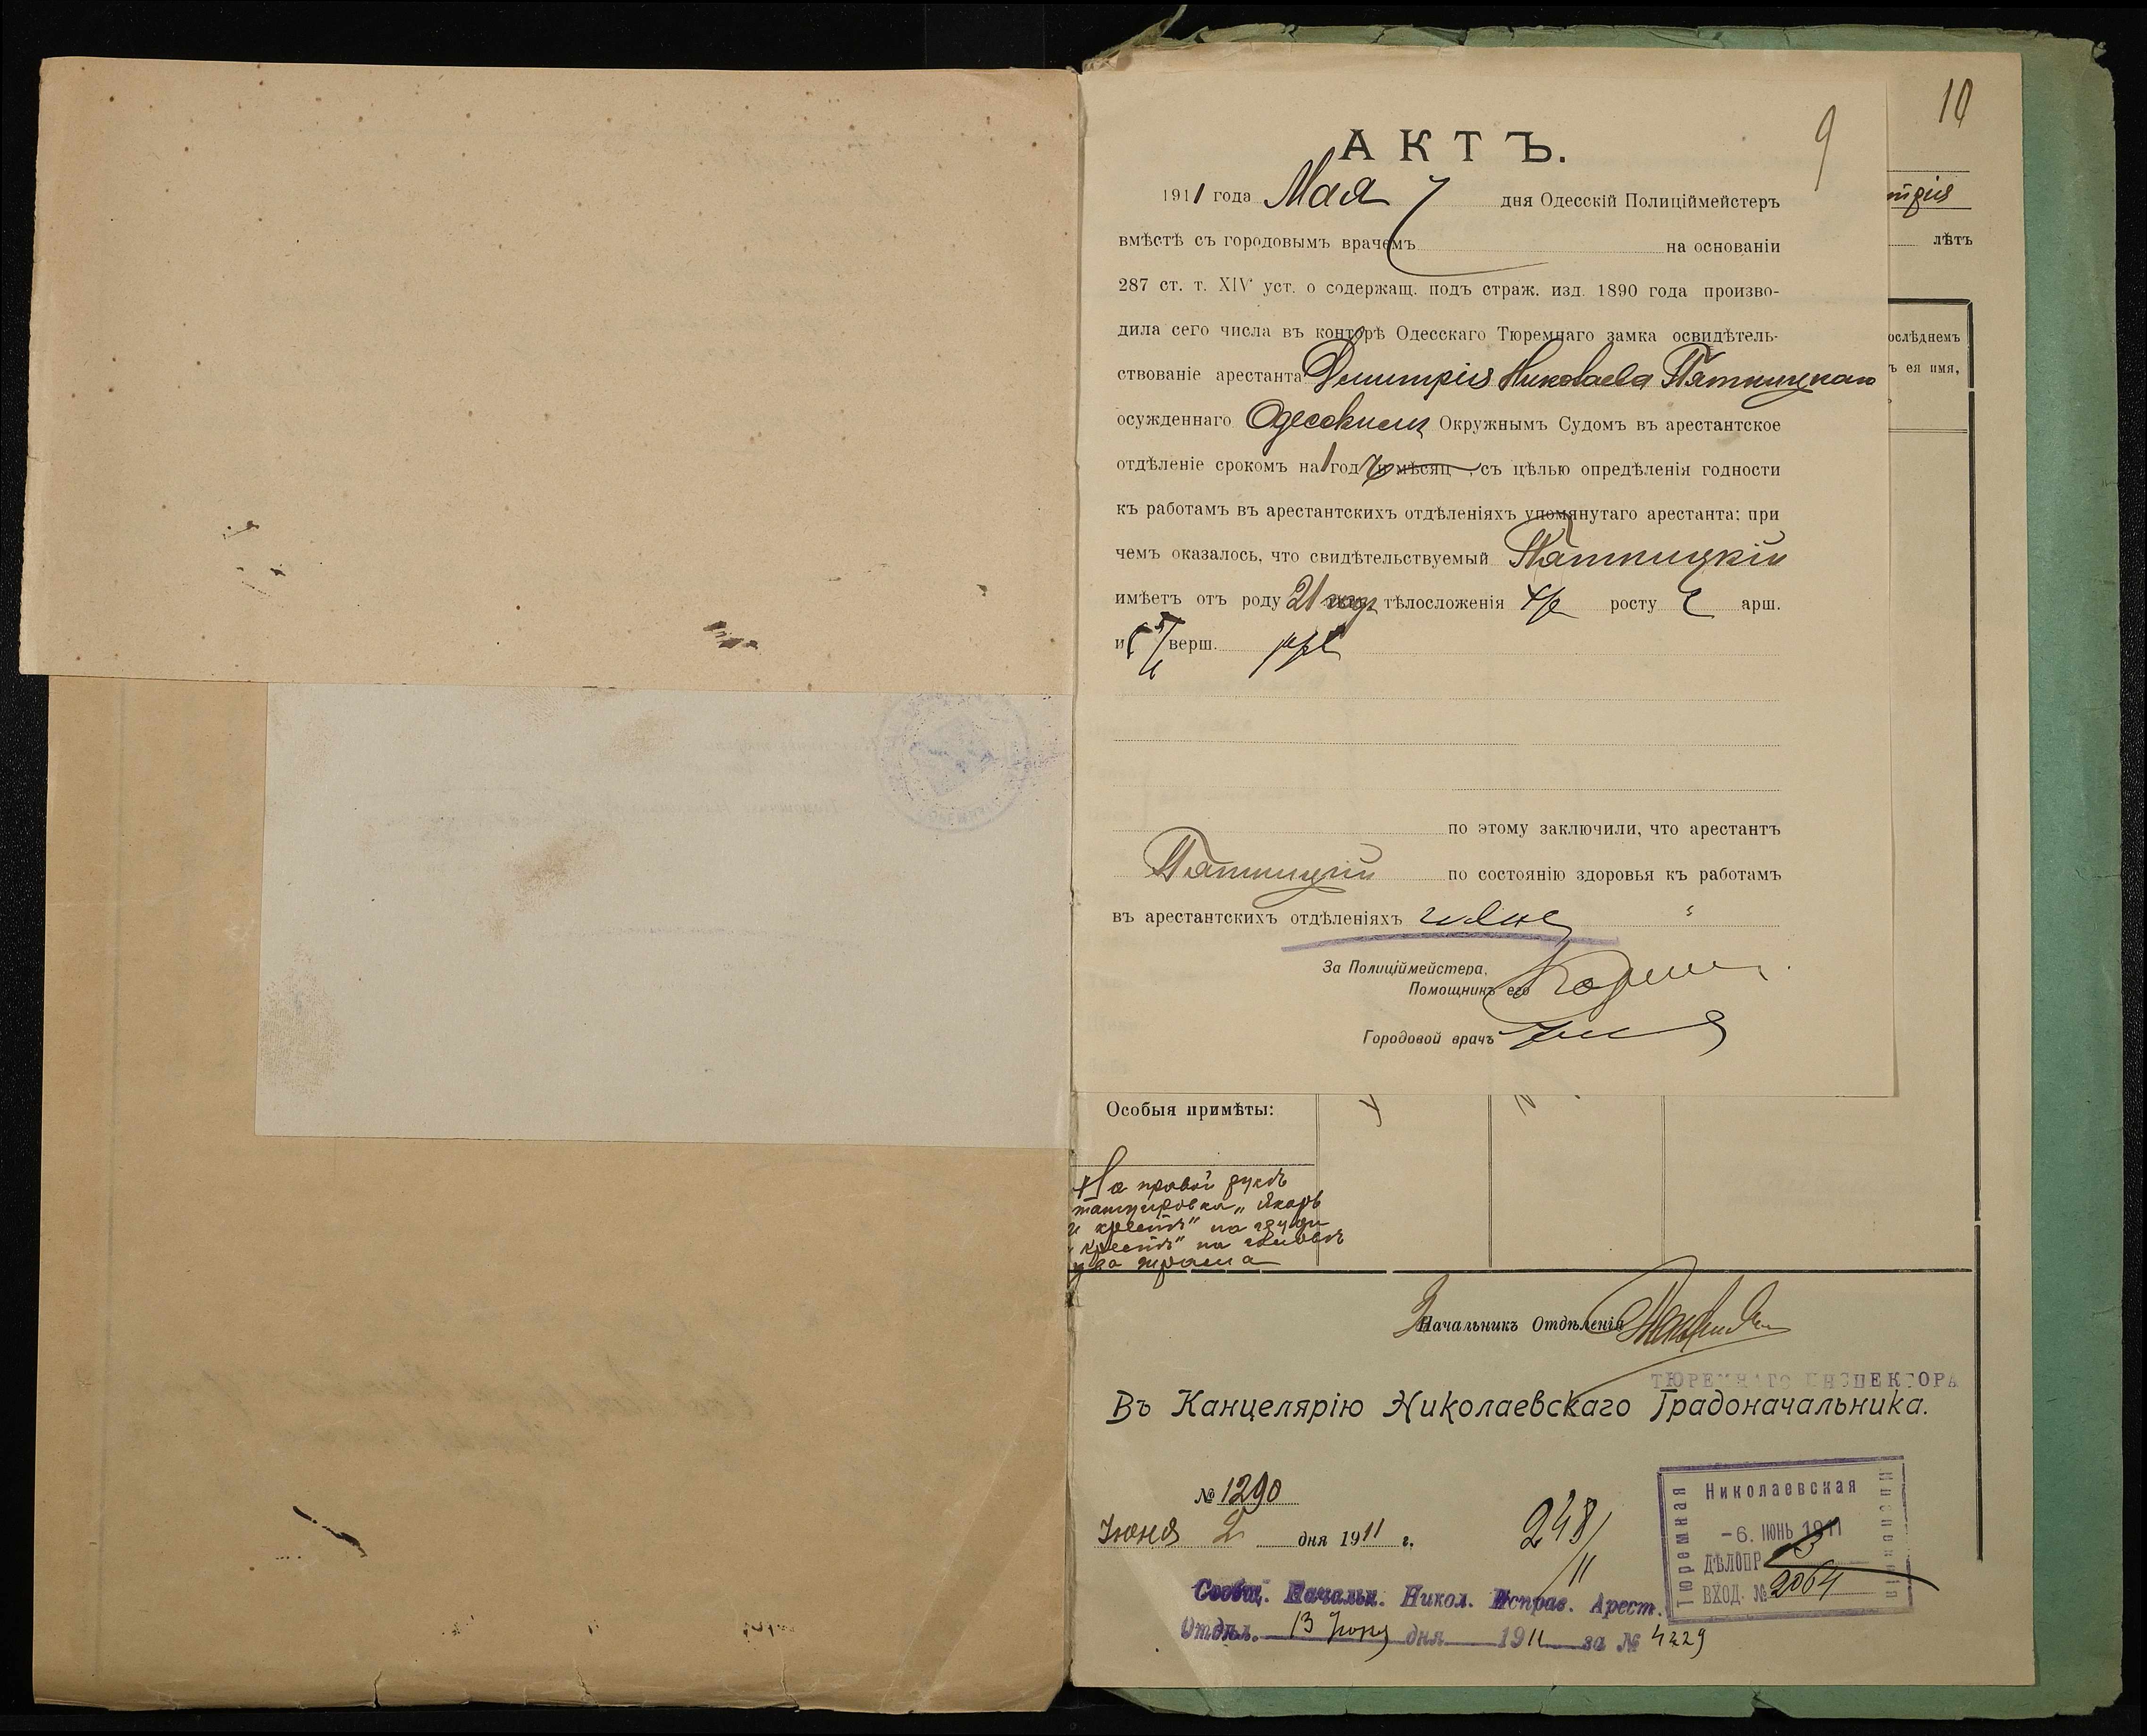 10
9
АКТЪ.
1911 года Мая 7 дня Одесскій Полиціймейстеръ
вмѣстѣ съ городовымъ врачемъ на основаніи
287 ст. т. XIV уст. о содержащ. подъ страж. изд. 1890 года произво-
дила сего числа въ конторѣ Одесскаго Тюремнаго замка освидѣтель-
ствованіе арестанта Димитрія Николаева Пятницкаго
осужденнаго Одесскимъ Окружнымъ Судомъ въ арестантское
отдѣленіе срокомъ на 1 годъ и мѣсяц , съ цѣлью опредѣленія годности
къ работамъ въ арестантскихъ отдѣленіяхъ упомянутаго арестанта: при
чемъ оказалось, что свидѣтельствуемый Пятницкій
имѣетъ отъ роду 21 годъ тѣлосложенія росту 2 арш.
и верш.
по этому заключили, что арестантъ
Пятницкій по состоянію здоровья къ работамъ
въ арестантскихъ отдѣленіяхъ
За Полиціймейстера,
Помощникъ его
Городовой врачъ
трія
лѣтъ
ослѣднемъ
ъ ея имя,
Особыя примѣты:
На правой рукѣ
татуировка „якорь
и крестъ" на груди
„крестъ" на головѣ
два шрама
Начальникъ Отдѣленія
ТЮРЕМНАГО ИНСПЕКТОРА
Въ Канцелярію Николаевскаго Градоначальника.
№ 1290
Іюня 2 дня 1911 г.
248/11
Николаевская
Тюремная
Инспекція
-6. ІЮНЬ 1911
ДѢЛОПР. 3
ВХОД. № 2064
Сообщ. Начальн. Никол. Исправ. Арест.
Отдѣл. 13 Іюня дня 1911 за № 4229